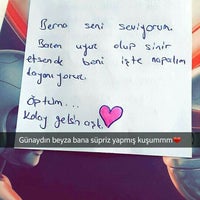 Berna seni seviyorum.
Bazen uyuz olup sinir
etsende beni işte napalım
dayanıyoruz.
Öptüm...
Kolay gelsin aşk
Günaydın beyza bana süpriz yapmış kuşummm